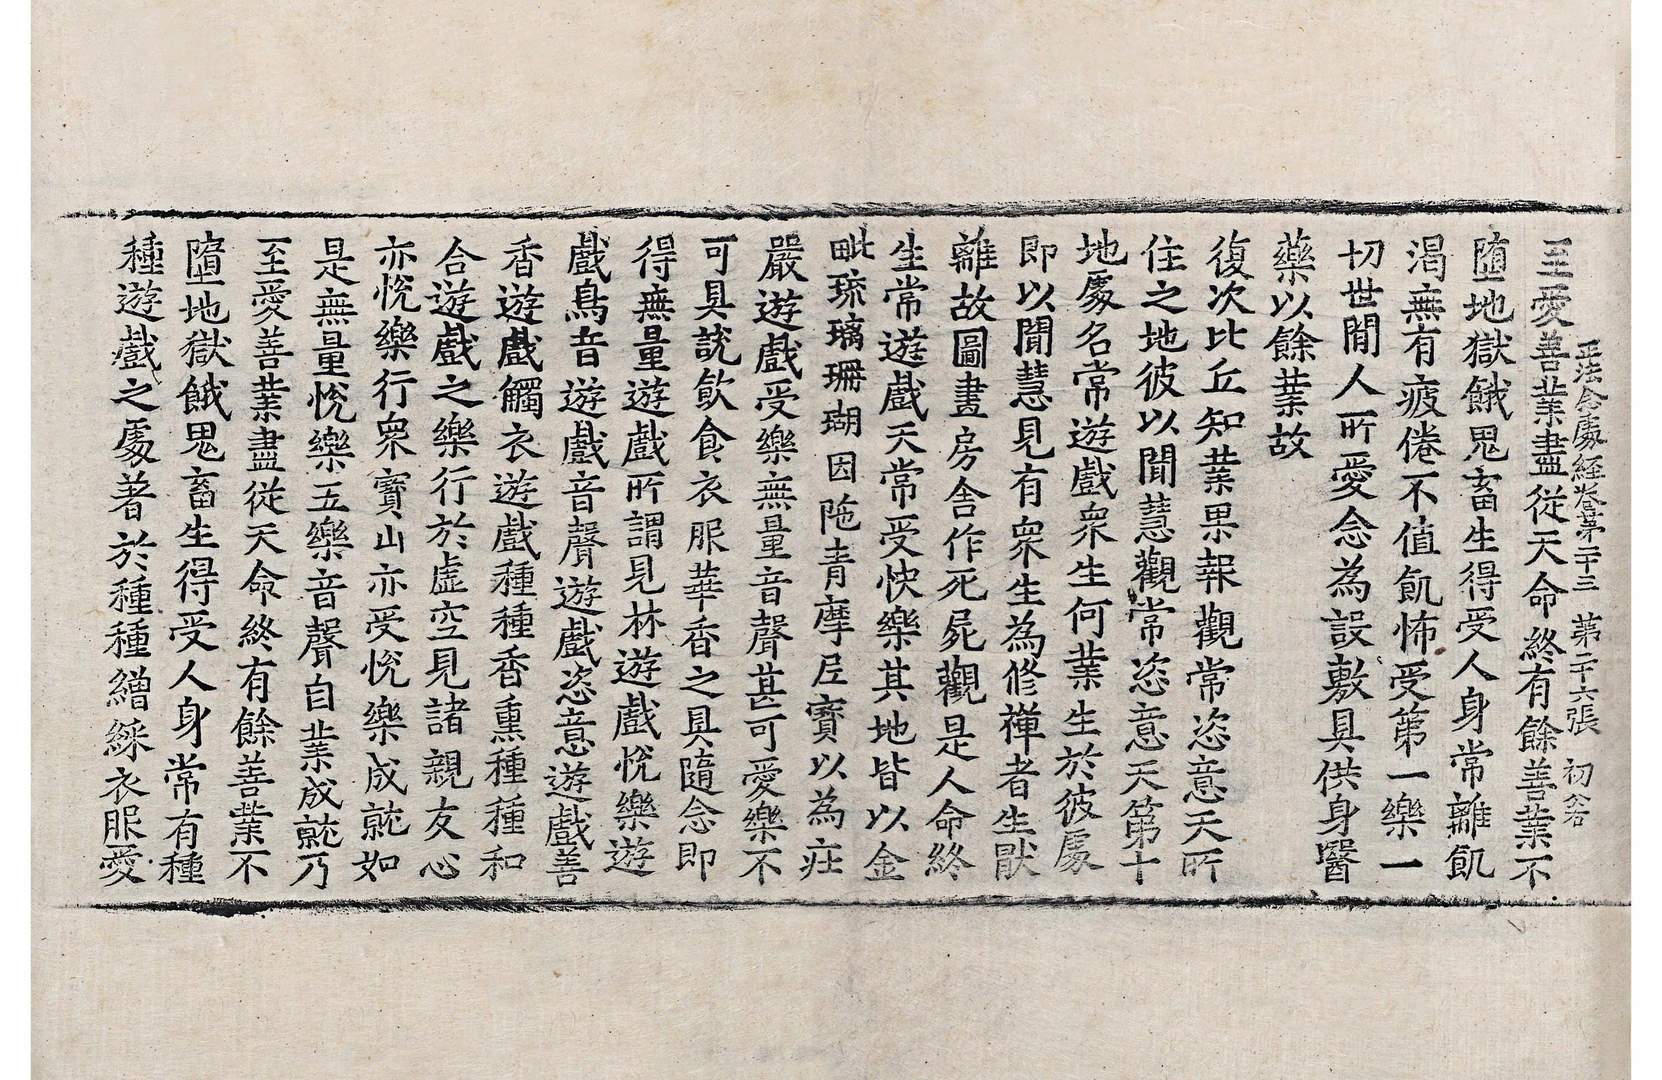 正法念處経卷第二十三 第二十六張 初
至愛善業盡從天命終有餘善業不
墮地獄餓鬼畜生得受人身常離飢
渴無有疲倦不値飢怖受第一樂一
切世間人所愛念為設敷具供身醫
藥以餘業故
復次比丘知業果報觀常恣意天所
住之地彼以聞慧觀常恣意天第十
地處名常遊戲衆生何業生於彼處
即以聞慧見有衆生為修禪者生猒
離故圖畫房舍作死屍觀是人命終
生常遊戲天常受快樂其地皆以金
毗琉璃珊瑚因陁青摩尼寶以為莊
嚴遊戲受樂無量音聲甚可愛樂不
可具說飮食衣服華香之具隨念即
得無量遊戲所謂見林遊戲悅樂遊
戲鳥音遊戲音聲遊戲恣意遊戲善
香遊戲觸衣遊戲種種香熏種種和
合遊戲之樂行於虛空見諸親友心
亦悅樂行衆寶山亦受悅樂成就如
是無量悅樂五樂音聲自業成就乃
至愛善業盡從天命終有餘善業不
墮地獄餓鬼畜生得受人身常有種
種遊戲之處著於種種繒綵衣服愛